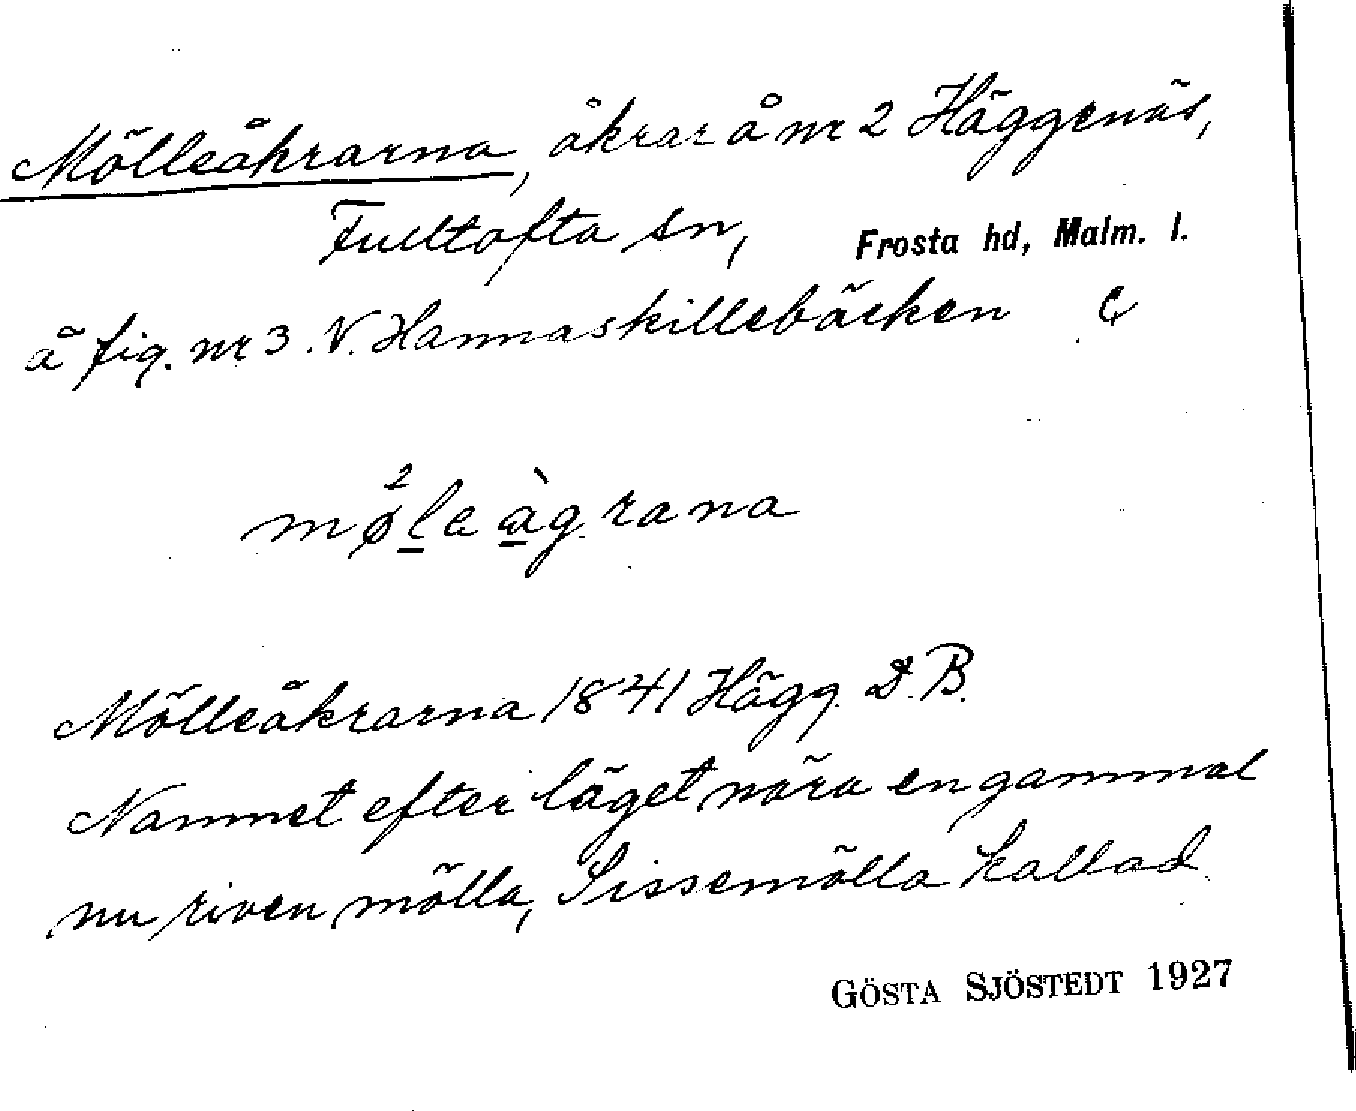 Mölleåkrarna, åkrar å nr 2 Häggenäs,
Fultofta sn, Frosta hd, Malm. l.
å fig. nr 3. V. Hannaskillebäcken
møleàgrana
Mölleåkrarna 1841 Hägg. D.B.
Namnet efter läget nära en gammal
nu riven mölla, Sissemölla kallad.
GÖSTA SJÖSTEDT 1927